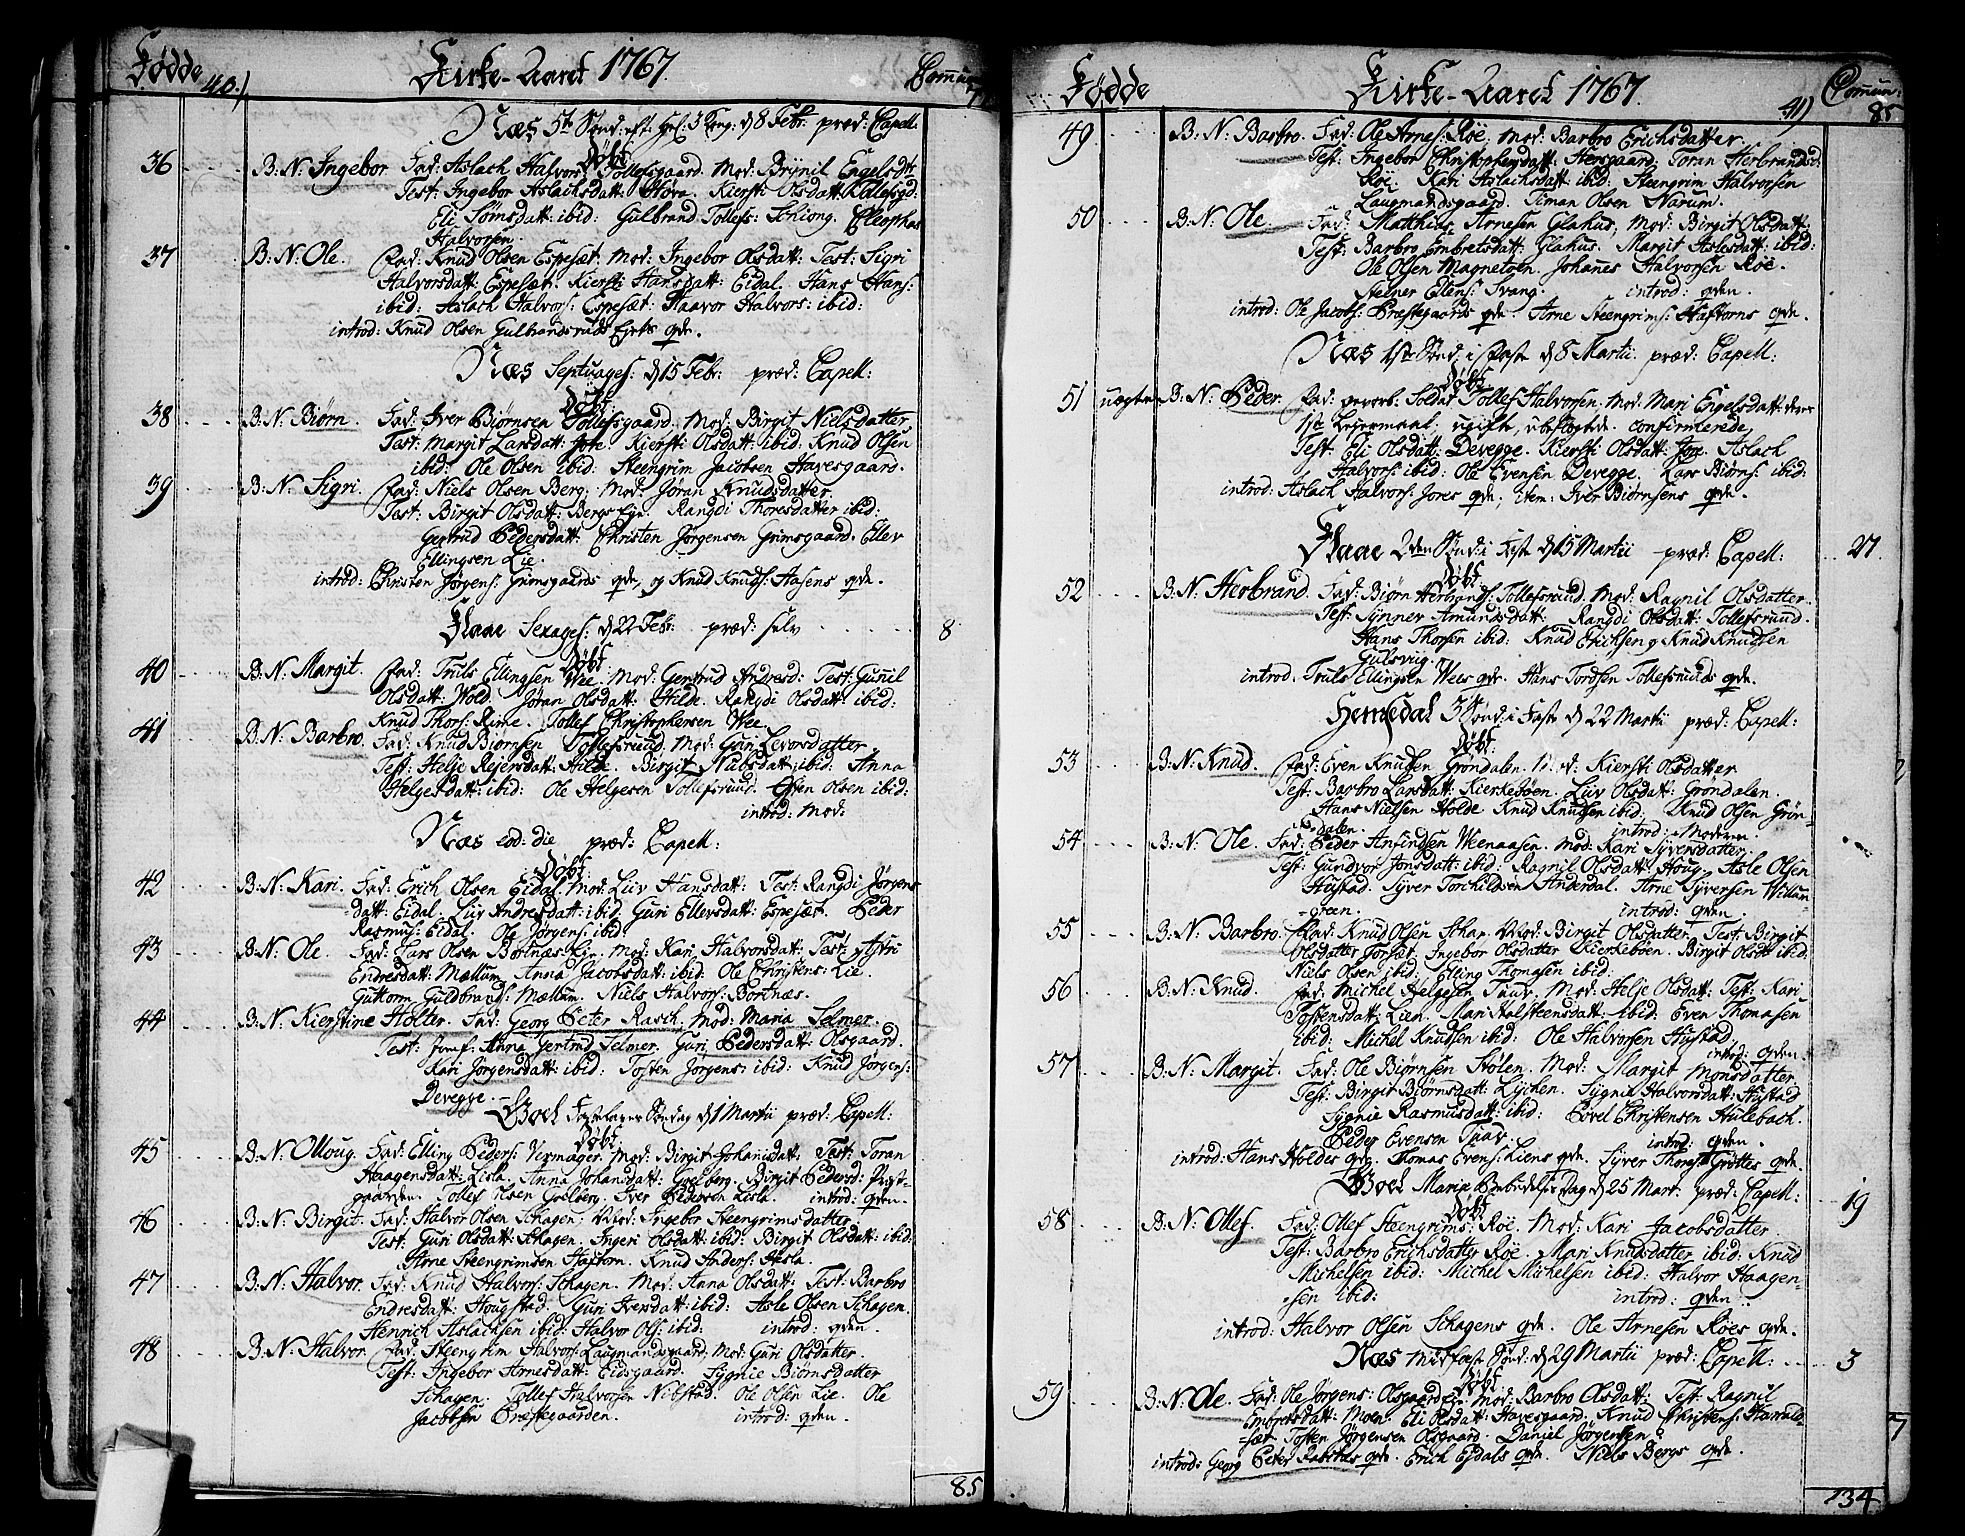 Fødde
40.)
Kirke-Aaret 1767.
Commun:
Næs 5te Sønd: eft: Hel: 3 Kong: d 8 Febr: præd: Capell:
Døbt:
36 B: N: Ingebor Fad: Aslach Halvors: Tollefsgaard. Mod: Brynil Engelsdtr
Test: Ingebor Aslachsdatt: Hova. Kiersti Olsdatt: Tollefsgd:
Eli Sømsdatt: ibid: Gulbrand Tollefs: Schiong. Cleophas
Halvorsen.
37 B: N: Ole. Fad: Knud Olsen Espesæt. Mod: Ingebor Olsdatt: Test: Sigri
Halvorsdatt: Espesæt. Kiersti Hansdatt: Eidal. Hans Hans:
ibid: Aslach Halvors: Espesæt. Haavor Halvors: ibid:
introd: Knud Olsen Gulbrandsruds Ejets qde.
Næs Septuages: d 15 Febr: præd: Capell:
Døbt:
38 B: N: Biørn. Fad: Iver Biørnsen Tollefsgaard. Mod: Birgit Nielsdatter
Test: Margit Larsdatt: Jote. Kiersti Olsdatt: ibid. Knud Olsen
ibid: Ole Olsen ibid: Steengrim Jacobsen Havesgaard.
39 B: N: Sigri. Fad: Niels Olsen Berg. Mod: Jøran Knudsdatter
Test: Birgit Olsdatt: Bergs Eje. Rangdi Thoresdatter ibid:
Gertrud Pedersdatt: Christen Jørgensen Grimsgaard. Ellev
Ellingsen Lie.
introd: Christen Jørgens: Grimsgaards qde, og Knud Knuds: Aasens qde.
Flaae Sexages: d 22 Febr: præd: selv 8
Døbt:
40 B: N: Margit. Fad: Truls Ellingsen Wee. Mod: Gertrud Andresd: Test: Gunil
Olsdatt: Wold. Jøran Olsdatt: Hilde. Rangdi Olsdatt: ibid:
Knud Thors: Rime. Tollef Christophersen Wee.
41 B: N: Barbro. Fad: Knud Biørnsen Tollefsruud. Mod: Guri Levorsdatter
Test: Helje Reiersdatt: Hilde. Birgit Nubsdatt: ibid: Anna
Helgesdatt: ibid: Ole Helgesen Tollefsruud. Esten Olsen ibid:
introd: Mod:
Næs eod: die præd: Capell:
Døbt:
42 B: N: Kari. Fad: Erich Olsen Eidal. Mod: Liv Hansdatt: Test: Rangdi Jørgens
datt: Eidal. Liv Andresdatt: ibid. Guri Ellevsdatt: Espesæt. Peder
Rasmus: Eidal. Ole Jørgens: ibid.
43 B: N: Ole. Fad: Lars Olsen Bortnæs Eje. Mod: Kari Halvorsdatt: Test: Astri
Endresdatt: Mællum. Anna Jacobsdatt: ibid. Ole Christens: Lie.
Guttorm Guldbrands: Mællum. Niels Halvors: Bortnæs.
44 B: N: Kierstine Holter. Fad: Georg Peter Rasch. Mod: Maria Selmer.
Test: Jomf: Anna Gertrud Selmer. Guri Pedersdatt: Olsgaard.
Kari Jørgensdatt: ibid: Tosten Jørgens: ibid: Knud Jørgens:
Devegge.
Goel Fastelagns Søndag d 1 Martii præd: Capell:
Døbt:
45 B: N: Olloug. Fad: Elling Peders: Vermager. Mod: Birgit Johansdatt: Test: Toran
Haagensdatt: Lisla. Anna Johansdatt: Goelberg. Birgit Pedersd: Prest-
gaarden. Tollef Olsen Goelberg. Iver Pedersen Lisla. introd: qden.
46 B: N: Birgit. Fad: Halvor Olsen Schagen. Mod: Ingebor Steengrimsdatter
Test: Guri Olsdatt: Schagen. Ingeri Olsdatt: ibid: Birgit Olsdatt: ibid:
Arne Steengrimsen Haftorn. Knud Anders: Hesla.
47 B: N: Halvor. Fad: Knud Halvors: Schagen. Mod: Anna Olsdatt: Test: Barbro
Endresdatt: Hougstad. Guri Iversdatt: ibid: Asle Olsen Schagen.
Henrich Aslachsen ibid: Halvor Ols: ibid. introd: qden.
48 B: N: Halvor. Fad: Steengrim Halvors: Laugmandsgaard. Mod: Guri Olsdatter.
Test: Ingebor Arnesdatt: Eidsgaard. Sygnie Biørnsdatter
Schagen. Tollef Halvorsen Nibstad. Ole Olsen Lie. Ole
Jacobsen Præstegaarden. introd: qden.
85
Fødde
Kirke-Aaret 1767.
41)
Commun:
85
49 B: N: Barbro. Fad: Ole Arnes: Røe. Mod: Barbro Erichsdatter
Test: Ingebor Christophersdatt: Hersgaard. Toran Herbrandsd:
Røe. Kari Aslachsdatt: ibid: Steengrim Halvorsen
Laugmandsgaard. Timan Olsen Narum.
50 B: N: Ole. Fad: Matthias Arnesen Glahus. Mod: Birgit Olsdatt:
Test: Barbro Embretsdatt: Glahus. Margit Aslesdatt: ibid:
Ole Olsen Magnetoen. Johanes Halvorsen Røe.
Steiner Ellens: Svang. introd: qden.
introd: Ole Jacobs: Præstegaards qde. Arne Steengrims: Haftorns qde.
Næs 1ste Sønd: i Faste d 8 Martii. præd: Capell:
Døbt:
51 uægte B: N: Peder. Fad: Soldat Tollef Halvorsen, Mod: Mari Engelsdatt: deres
1ste Lejermaal, ugifte, ubeslegtede, confirmerede.
Test: Eli Olsdatt: Devegge. Kiersti Olsdatt: Jore. Aslach
Halvors: ibid: Ole Evensen Devegge. Lars Biørns: ibid:
introd: Aslach Halvors: Jores qde; item: Iver Biørnsens qde.
Flaae 2den Sønd: i Faste d 15 Martii præd: Capell: 27.
Døbt:
52 B: N: Herbrand. Fad: Biørn Herbrands: Tollefsruud. Mod: Ragnil Olsdatter
Test: Synner Amundsdatt: Rangdi Olsdatt: Tollefsruud.
Hans Thorsen ibid: Knud Erichsen og Knud Knudsen
Gulsvig.
introd: Truls Ellingsen Wees qde. Hans Tordsen Tollefsruuds qde.
Hemsedal 3die Sønd: i Faste d 22 Martii præd: Capell:
Døbt:
53 B: N: Knud. Fad: Even Knudsen Grøndalen. Mod: Kiersti Olsdatter
Test: Barbro Larsdatt: Kierkebøen. Liv Olsdatt: Grøndalen.
Hans Nielsen Holde. Knud Knudsen ibid. Knud Olsen Grøn-
dalen. introd: Moderen.
54 B: N: Ole. Fad: Peder Anfindsen Weenaasen. Mod: Kari Syversdatter.
Test: Gundvor Jonsdatt: ibid: Ragnil Olsdatt: Houg. Asle Olsen
Hustad. Syver Torchildsen Anderdal. Arne Syversen Willum-
green. introd: qden.
55 B: N: Barbro. Fad: Knud Olsen Schar. Mod: Birgit Olsdatter. Test Birgit
Olsdatter Torset. Ingebor Olsdatter Kierkebøen. Birgit Olsdt: ibid:
Niels Olsen ibid: Elling Thomasen ibid:
56 B: N: Knud. Fad: Michel Helgesen Tuv. Mod: Helje Olsdatt: Test: Kari
Tostensdatt: Lien. Mari Halsteensdatt: ibid: Even Thomasen
ibid: Michel Knudsen ibid: Ole Halvorsen Hustad.
introd: qden.
57 B: N: Margit. Fad: Ole Biørnsen Stølen. Mod: Margit Monsdatter
Test: Birgit Biørnsdatt: Lyken. Sygnil Halvorsdatt: Hustad
Sygnie Rasmusdatt: ibid: Povel Christensen Hulebach.
Peder Evensen Tuv. introd: qden.
introd: Hans Holdes qde. Thomas Evens: Liens qde. Syver Thors: Grøttes qde.
Goel Mariæ Bebudelses Dag d 25 Mart: præd: Capell: 19
Døbt
58 B: N: Ollef. Fad: Ollef Steengrims: Røe. Mod: Kari Jacobsdatter
Test: Barbro Erichsdatter Røe. Mari Knudsdatter ibid. Knud
Michelsen ibid: Michel Michelsen ibid: Halvor Haagen-
sen ibid: introd: qden.
introd: Halvor Olsen Schagens qde. Ole Arnesen Røes qde.
Næs Midfaste Sønd: d 29 Martii præd: Capell: 3
Døbt
59 B: N: Ole. Fad: Ole Jørgens: Olsgaard Eje. Mod: Barbro Olsdatt: Test: Ragnil
Embretsdatt: Moen. Eli Olsdatt: Havesgaard. Knud Christens: Harrale-
sæt. Tosten Jørgensen Olsgaard. Daniel Jørgensen
introd: Georg Peter Rasches qde. Erich Ejdals qde. Niels Bergs qde.
134